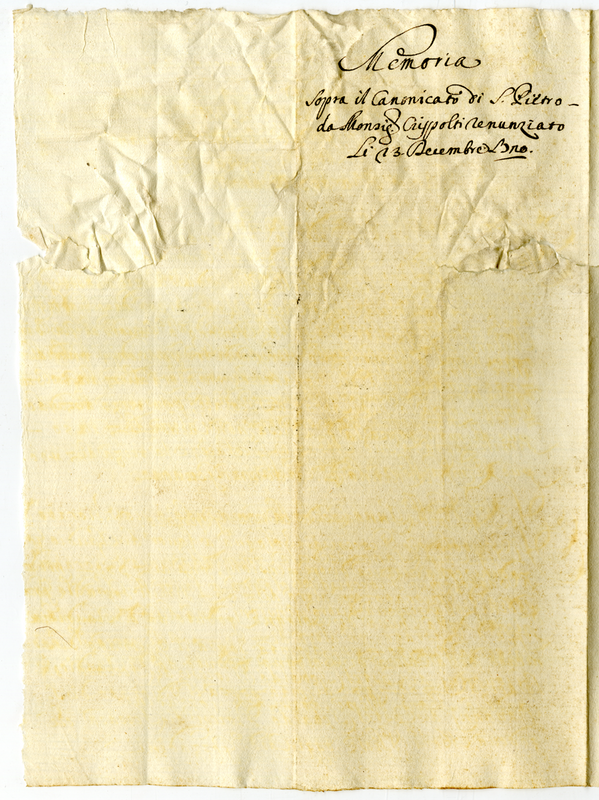 Memoria
Sopra il Canonicato di S. Pietro
da Monsig.r Crispolti renunziato
Li 23 Decembre